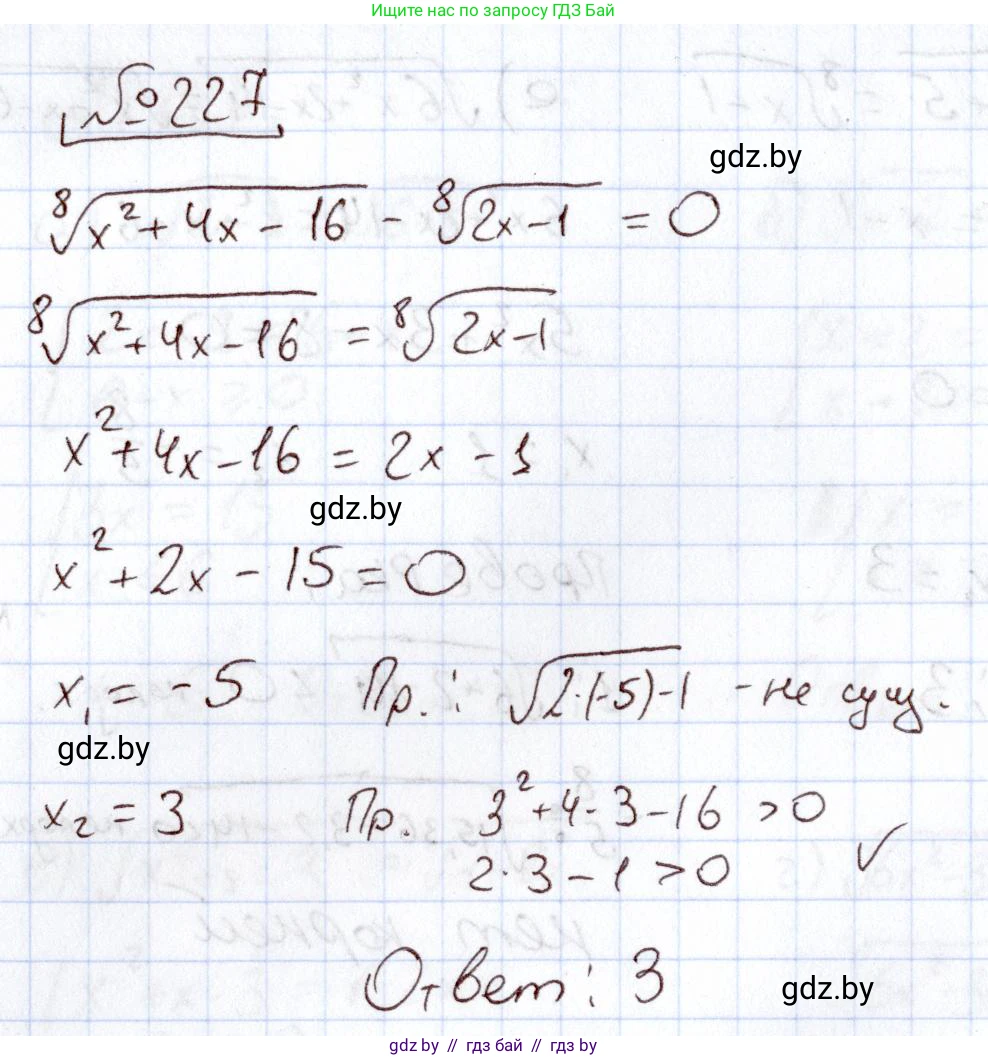 Ищите нас по запросу ГДЗ Бай
№227
gdz.by
⁸√(x² + 4x - 16) - ⁸√(2x-1) = 0
⁸√(x² + 4x - 16) = ⁸√(2x-1)
x² + 4x - 16 = 2x - 1
gdz.by
x² + 2x - 15 = 0
x₁ = -5 Пр.: √(2·(-5)-1) - не сущ.
gdz.by
x₂ = 3 Пр. 3² + 4·3 - 16 > 0
2·3 - 1 > 0 ✓
Ответ: 3
gdz.by
gdz.by // гдз бай // gdz by